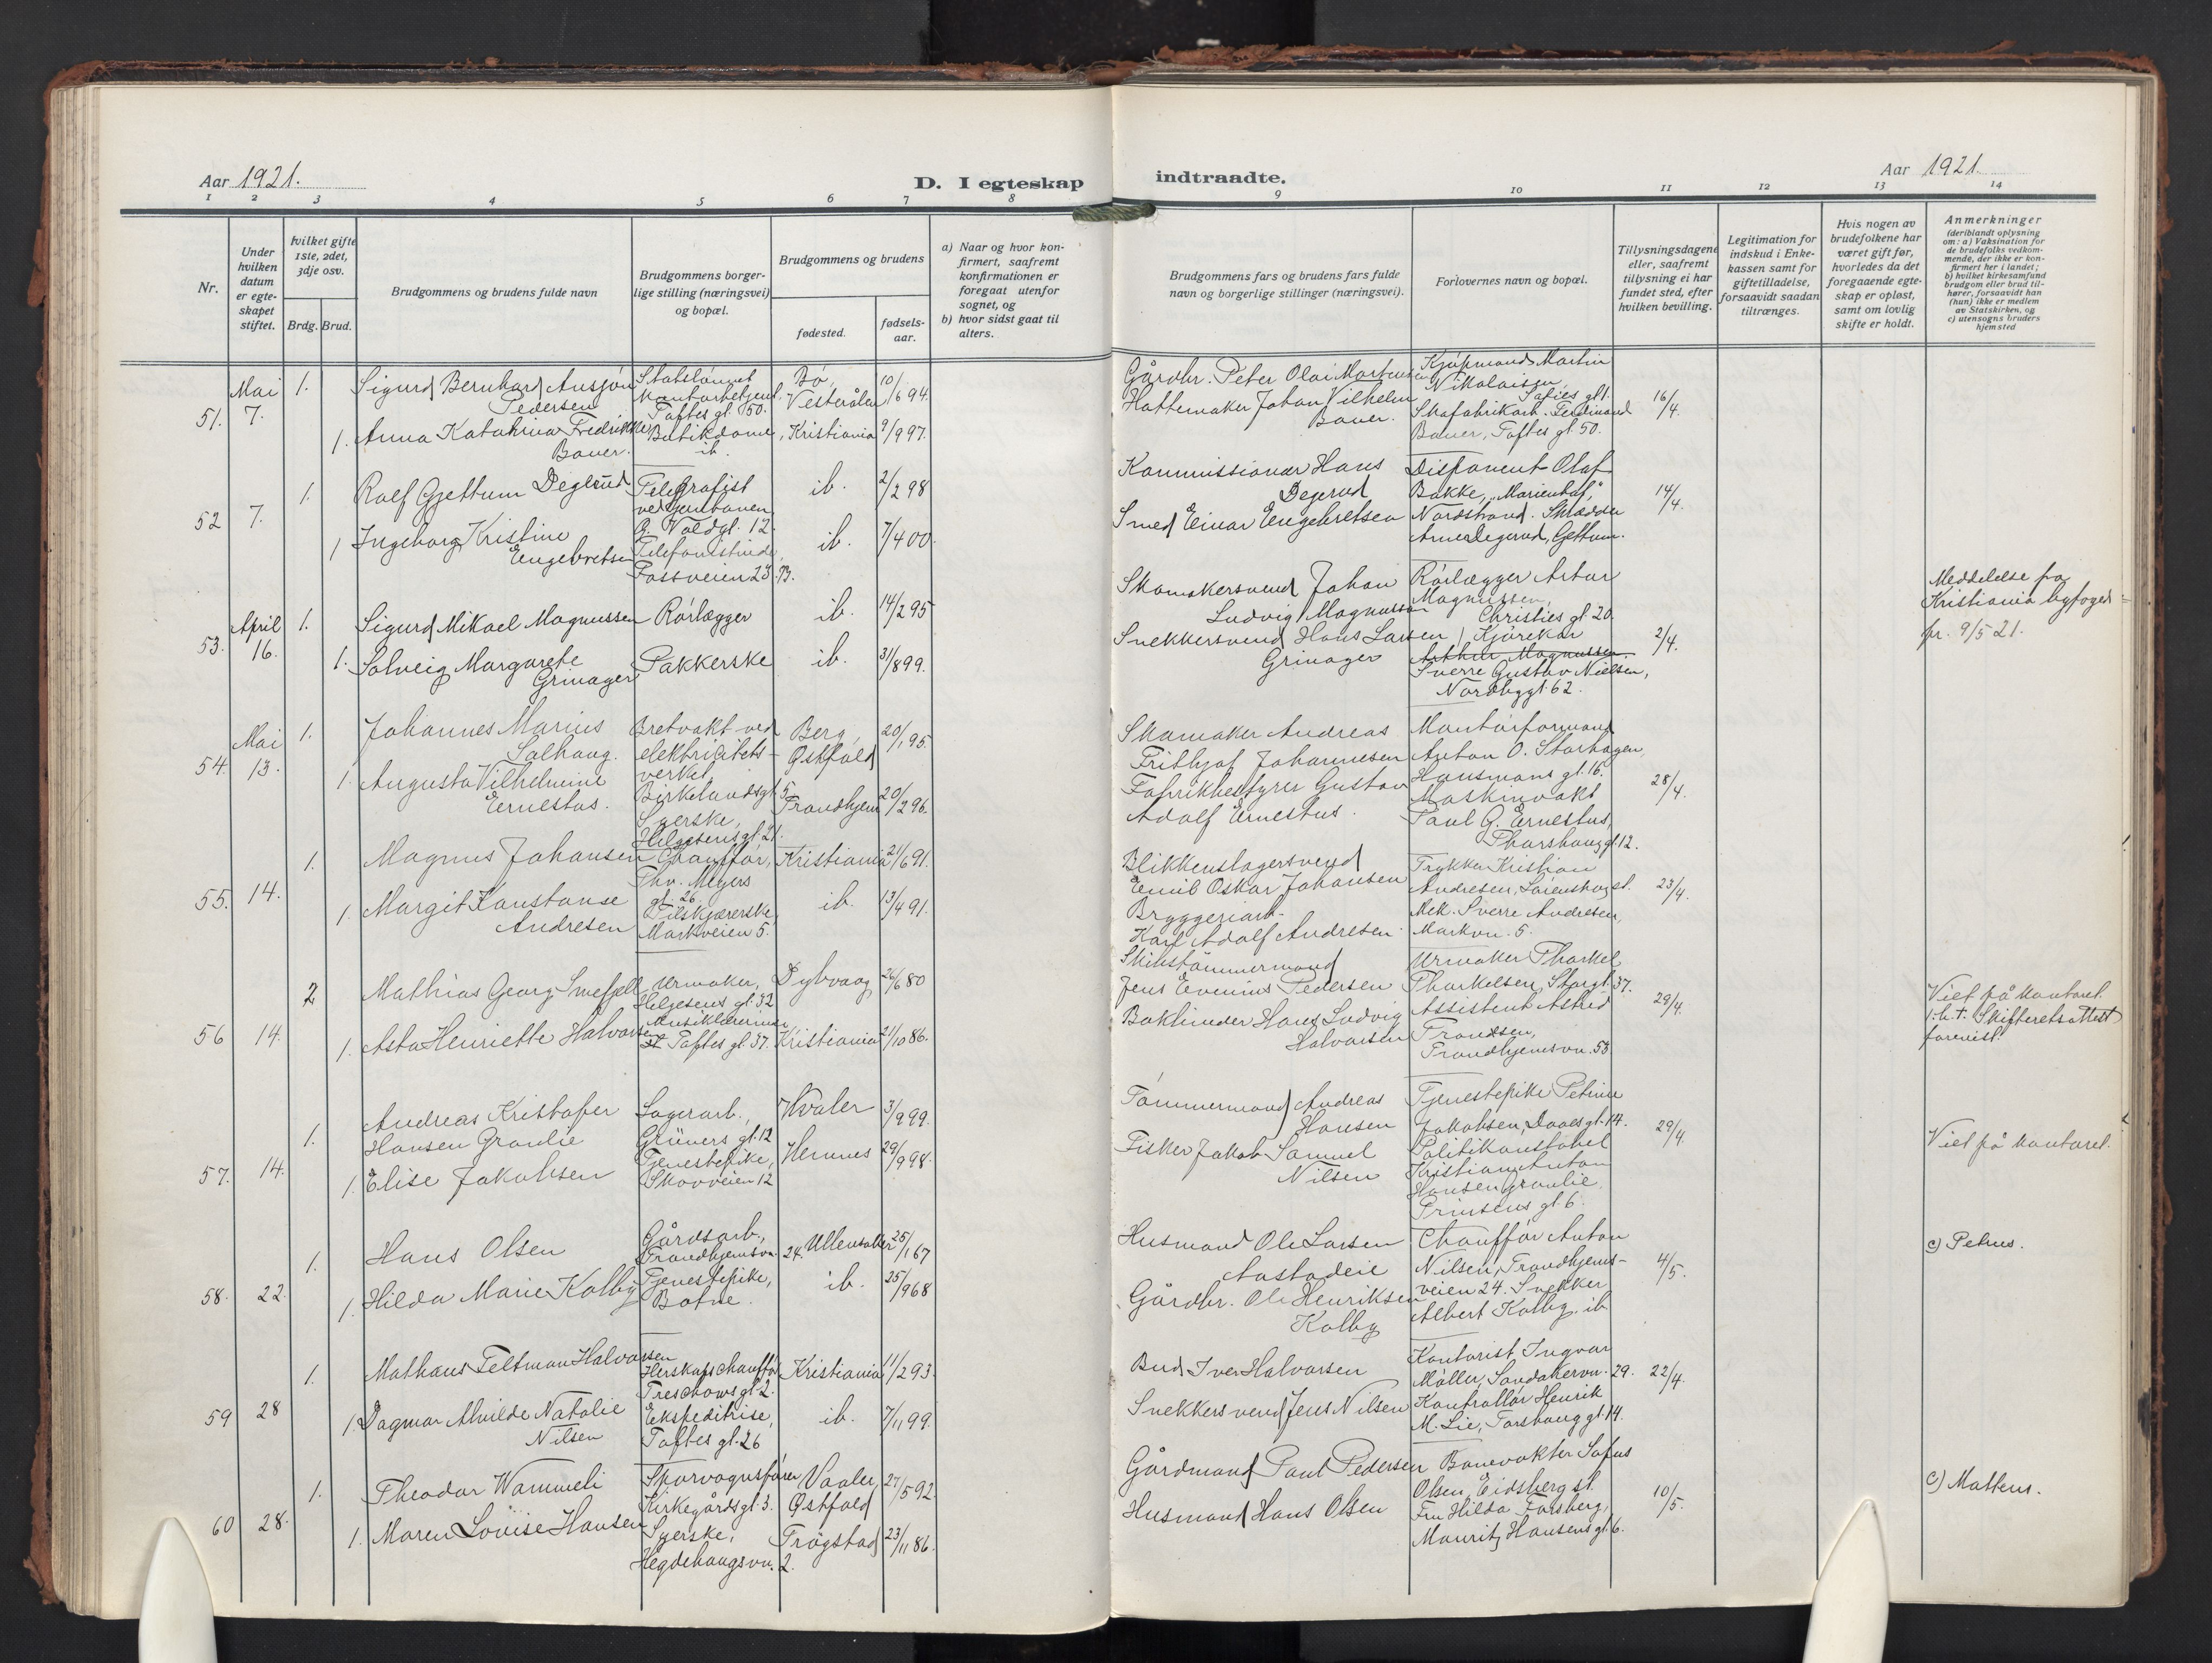 Aar 1921.
D. I egteskap
1 2 3 4 5 6 7 8
Nr.
Under hvilken datum er egteskapet stiftet.
hvilket gifte 1ste, 2det, 3dje osv.
Brdg. Brud.
Brudgommens og brudens fulde navn
Brudgommens borgerlige stilling (næringsvei) og bopæl.
Brudgommens og brudens
fødested.
fødselsaar.
a) Naar og hvor konfirmert, saafremt konfirmationen er foregaat utenfor sognet, og
b) hvor sidst gaat til alters.
indtraadte.
Aar 1921.
9 10 11 12 13 14
Brudgommens fars og brudens fars fulde navn og borgerlige stillinger (næringsvei).
Forlovernes navn og bopæl.
Tillysningsdagene eller, saafremt tillysning ei har fundet sted, efter hvilken bevilling.
Legitimation for indskud i Enkekassen samt for giftetilladelse, forsaavidt saadan tiltrænges.
Hvis nogen av brudefolkene har været gift før, hvorledes da det foregaaende egteskap er opløst, samt om lovlig skifte er holdt.
Anmerkninger
(deriblandt oplysning om: a) Vaksination for de brudefolks vedkommende, der ikke er konfirmert her i landet; b) hvilket kirkesamfund brudgom eller brud tilhører, forsaavidt han (hun) ikke er medlem av Statskirken, og c) utensogns bruders hjemsted
51. Mai 7. 1. Sigurd Bernhard Ansjøn Pedersen
Statslønnet kontorbetjent. Toftes gt. 50.
Bø, Vesterålen 10/6 94.
1. Anna Katahrina Fredrikke Bauer.
Butikdame, ib.
Kristiania 9/9 97.
Gårdbr. Peter Olai Mortensen
Hattemaker Johan Vilhelm Bauer.
Kjøpmand Martin Nikolaisen, Sofies gt 1.
Skofabrikarb. Ferdinand Bauer, Toftes gt. 50.
16/4.
52 7. 1. Rolf Gjettum Degerud
Telegrafist ved jernbanen G. Voldgt. 12.
ib. 2/2 98
1 Ingeborg Kristine Engebretsen
Telefonistinde, Fossveien 23 B.
ib. 7/4 00.
Kommissionær Hans Degerud
Smed Einar Engebretsen
Disponent Olaf Bakke, "Marienhof," Nordstrand. Skrædder Arne Degerud, Gjettum.
14/4.
53. April 16. 1. Sigurd Mikael Magnussen
Rørlægger
ib. 14/2 95
1. Solveig Margarete Grinager
Pakkerske
ib. 31/8 99.
Skomakersvend Johan Ludvig Magnussen
Snekkersvend Hans Larsen Grinager
Rørlægger Artur Magnussen, Christies gt 20.
Kjørekar
Arthur Magnussen.
Sverre Gustav Nielsen, Nordbygt. 62.
2/4.
Meddelelse fra Kristiania byfoged fr. 9/5 21.
54. Mai 13. 1. Johannes Marius Solhaug.
Bretvakt ved elektricitetsverket, Birkelandsgt 5
Berg, Østfold 20/1 95.
1. Augusta Vilhelmine Ernestus.
Syerske, Helgesens gt. 21.
Trondhjem 20/2 96.
Skomaker Andreas Frithjof Johannesen
Fabrikbestyrer Gustav Adolf Ernestus.
Montørformand Anton O. Storhagen, Hausmans gt. 16.
Maskinvakt Paul G. Ernestus, Thorshauggt. 12.
28/4.
55. 14. 1. Magnus Johansen
Chauffør, Thv. Meyers gt. 26.
Kristiania 21/6 91.
1. Margit Konstanse Andresen
Tilskjærerske, Markveien 5.
ib. 13/4 91.
Blikkenslagersvend Emil Oskar Johansen
Bryggeriarb. Karl Adolf Andresen.
Trykker Kristian Andresen, Lørenskog st.
Mek. Sverre Andresen, Markvn. 5.
23/4.
56 14. 2 Mathias Georg Smefjell
Urmaker, Helgesens gt. 32
Dybvaag 26/6 80
1. Asta Henriette Halvorsen
Musiklærerinde Toftes gt. 37.
Kristiania 21/10 86.
Skibstømmermand Jens Evenius Pedersen
Bokbinder Hans Ludvig Halvorsen
Urmaker Thorkel Thorkelsen, Storgt. 37.
Assistent Astrid Frondsen, Trondhjemsvn. 53.
29/4.
Viet på kontoret.
Skifteretsattest forevist.
57. 14. 1. Andreas Kristofer Hansen Granlie
Lagerarb., Grüners gt. 12
Hvaler 3/9 99.
1. Elise Jakobsen
Tjenestepike, Skovveien 12
Hemnes 29/9 98.
Tømmermand Andreas Hansen
Fisker Jakob Samuel Nilsen
Tjenestepike Petrine Jakobsen, Daas gt. 14.
Politikonstabel Kristian Anton Hansen Granlie. Prinsens gt. 6.
29/4
Viet på kontoret.
58. 22. 1. Hans Olsen
Gårdsarb., Trondhjemsvn. 24.
Ullensaker 25/1 67
1. Hilda Marie Kolby
Tjenestepike, Botne.
ib. 25/9 68
Husmand Ole Larsen Aastadeie
Gårdbr. Ole Henriksen Kolby
Chauffør Anton Nilsen, Trondhjemsveien 24. Snekker Albert Kolby. ib
4/5.
c) Petrus.
59 28 1. Mathæus Feltman Halvorsen
Herskapschauffør Treschows gt. 2.
Kristiania 11/2 93.
1. Dagmar Alvilde Natalie Nilsen
Ekspeditrise, Toftes gt. 26
ib. 7/11 99.
Bud Iver Halvorsen
Snekkersvend Jens Nilsen
Kontorist Ingvar Møller, Sandakervn. 29.
Kontrollør Henrik M. Lie, Torshauggt. 14.
22/4.
60 28. 1. Theodor Wammeli
Sporvognsfører Kirkegårdsgt. 3.
Vaaler, Østfold 27/5 92.
1. Maren Lovise Hansen
Syerske, Hegdehaugsvn. 2.
Trøgstad 23/11 86.
Gårdmand Paul Pedersen
Husmand Hans Olsen
Banevokter Sofus Olsen, Eidsberg st.
Fru Hilda Forsberg, Mauritz Hansens gt. 6.
10/5.
c) Matteus.